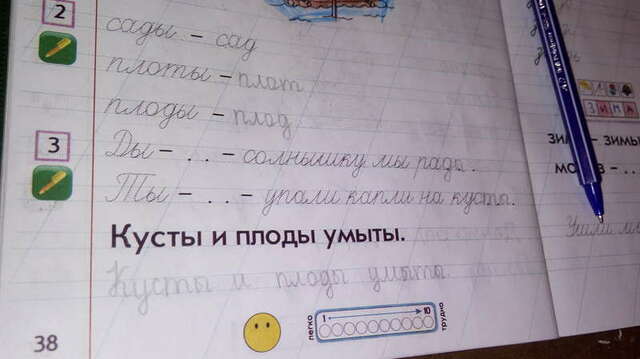 2
сады - сад
плоты - плот
плоды - плод
3
Ды - . . - солнышку мы рады.
Ты - . . - упали капли на кусты.
Кусты и плоды умыты.
Кусты и плоды умыты.
легко 1 10 трудно
38
ЗИМА